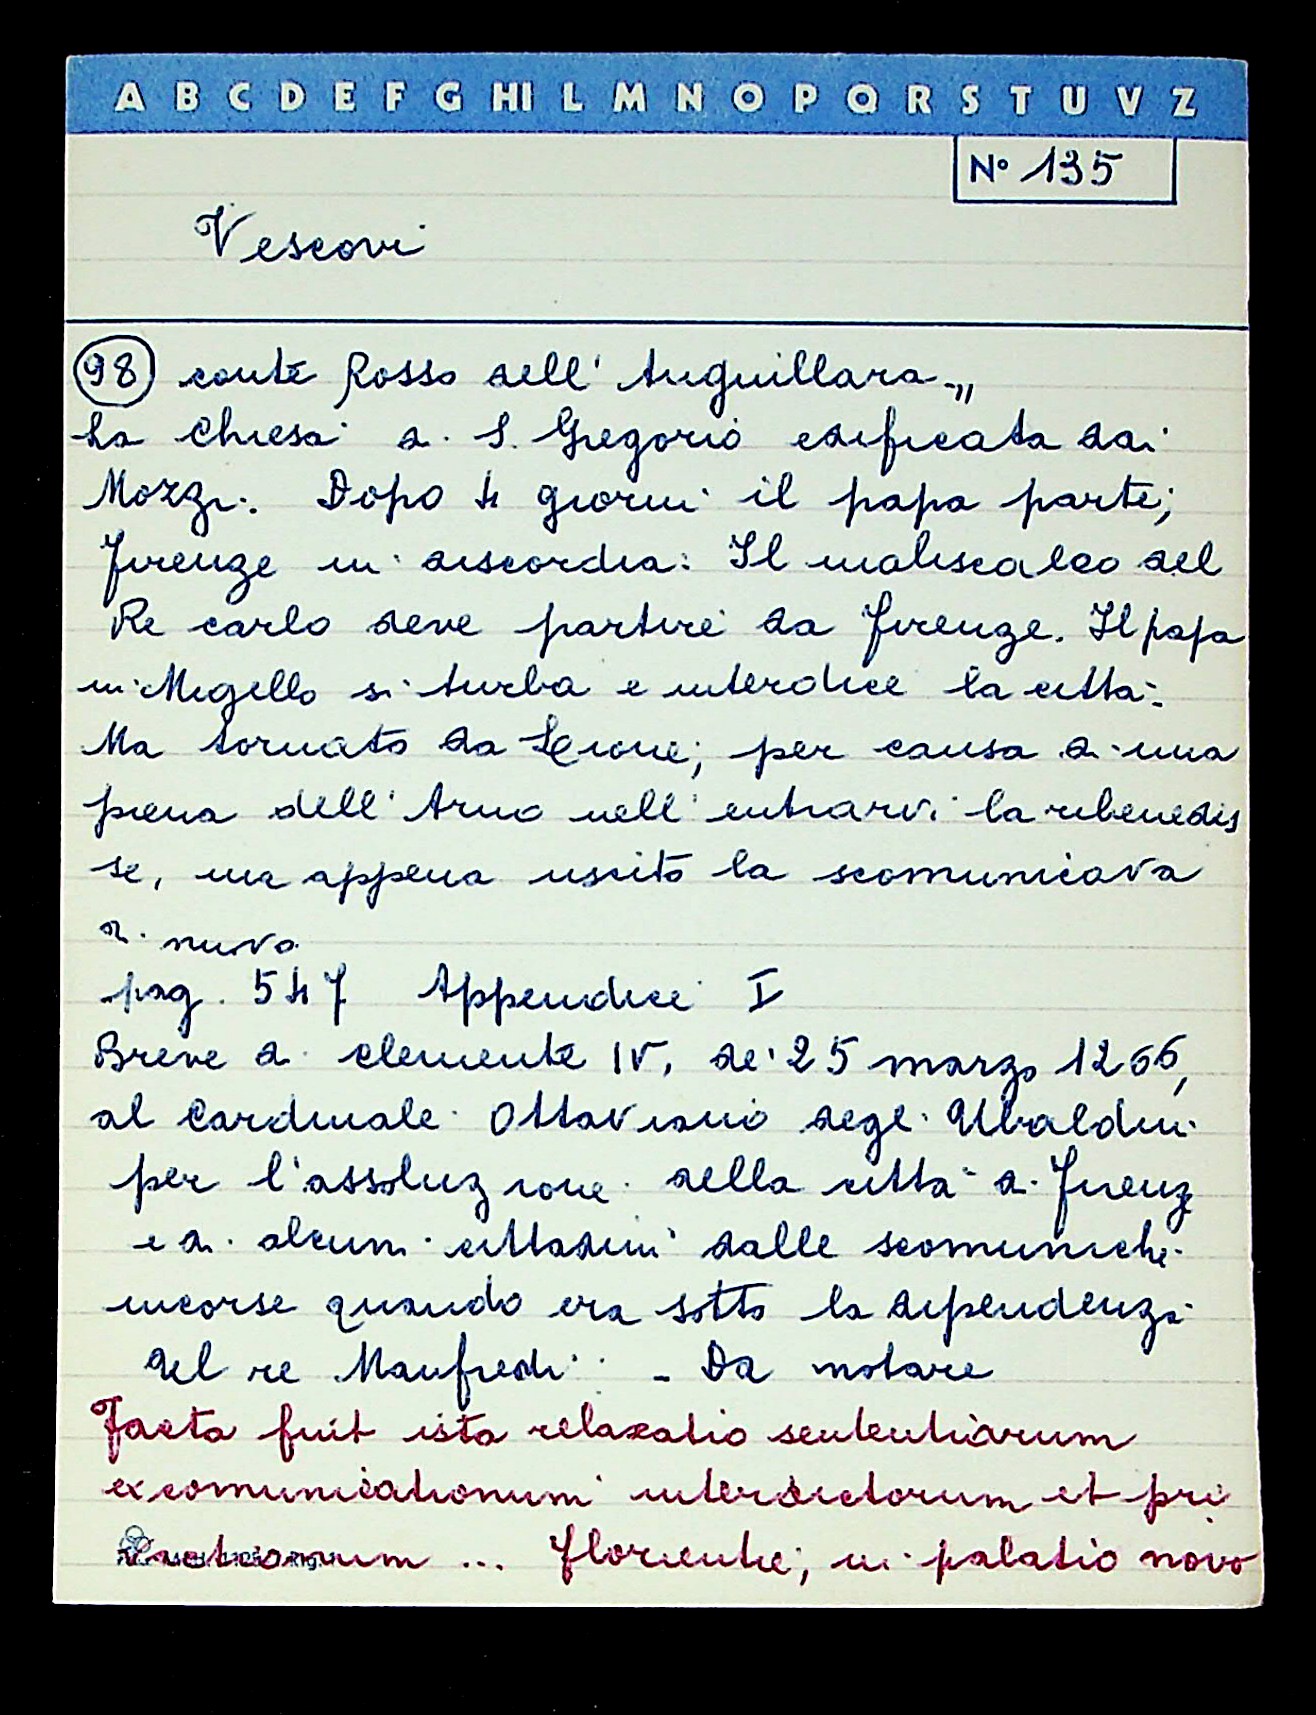 A B C D E F G HI L M N O P Q R S T U V Z
N° 135
Vescovi
98 conte Rosso dell'Anguillara „
La Chiesa di S. Gregorio edificata dai
Mozzi. Dopo 4 giorni il papa parte;
Firenze in discordia: Il maliscalco del
Re carlo deve partire da Firenze. Il papa
in Mugello si turba e interdice la città.
Ma tornato da Lione; per causa di una
piena dell'Arno nell'entrarvi la ribenedis
se, ma appena uscito la scomunicava
di nuovo
pag. 547 Appendice I
Breve di clemente IV, de' 25 marzo 1266,
al Cardinale Ottaviano degli Ubaldini
per l'assoluzione della città di Firenz
e di alcuni cittadini dalle scomuniche
incorse quando era sotto la dipendenza
del re Manfredi - Da notare
Facta fuit ista relaxatio sententiarum
excomunicationum interdictorum et pri
... Florentie; in palatio novo